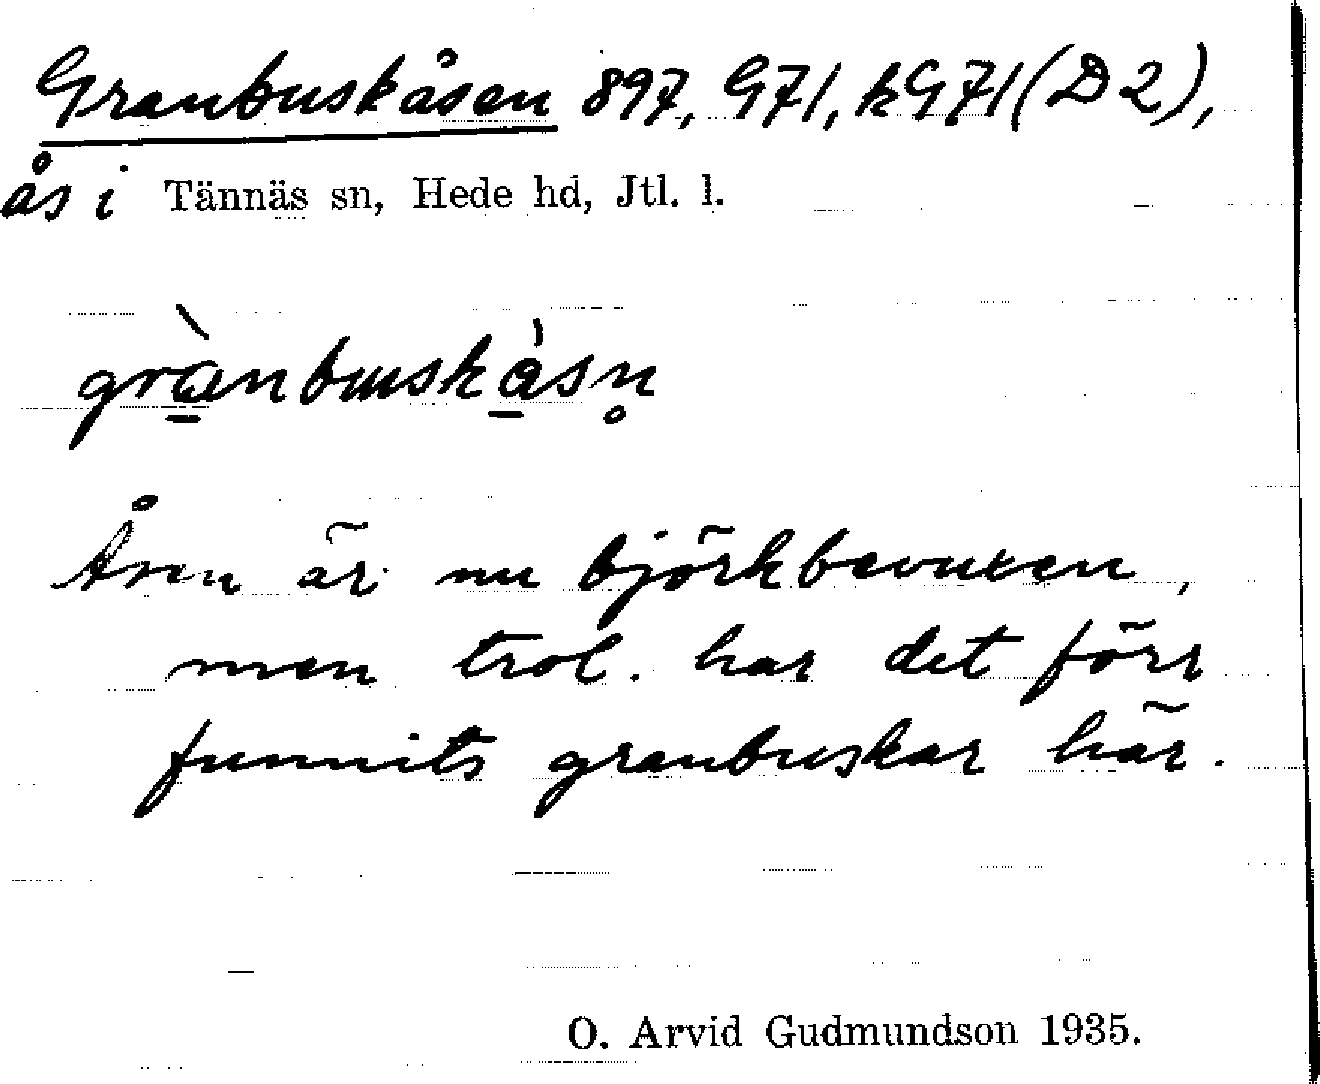 Granbuskåsen 897, G71, kG71 (D2),
ås i Tännäs sn, Hede hd, Jtl. l.
grànbuskàsn̥
Åsen är nu björkbevuxen,
men trol. har det förr
funnits granbuskar här.
O. Arvid Gudmundson 1935.